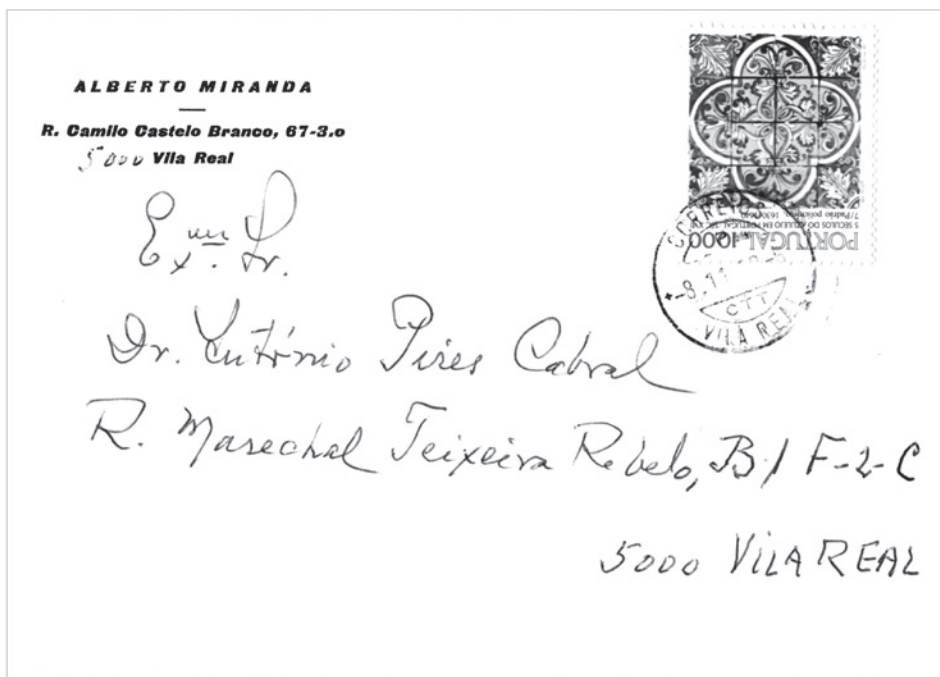 ALBERTO MIRANDA
R. Camilo Castelo Branco, 67-3.o
5000 Vila Real
Exmº. Sr.
Dr. António Pires Cabral
R. Marechal Teixeira Rebelo, B/ F-2-C
5000 VILA REAL
PORTUGAL 10.00
5 SÉCULOS DO AZULEJO EM PORTUGAL
CORREIOS
-8.11
CTT
VILA REAL